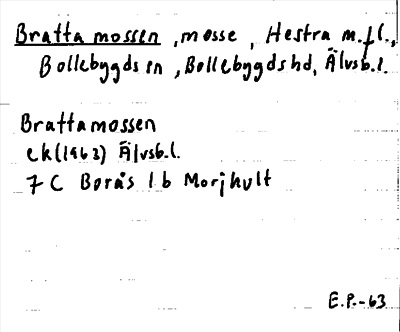 Bratta mossen, mosse, Hestra m.fl.,
Bollebygds sn, Bollebygds hd, Älvsb.l.
Brattamossen
ek(1963) Älvsb.l.
7 C Borås 1b Morjhult
E.P.-63